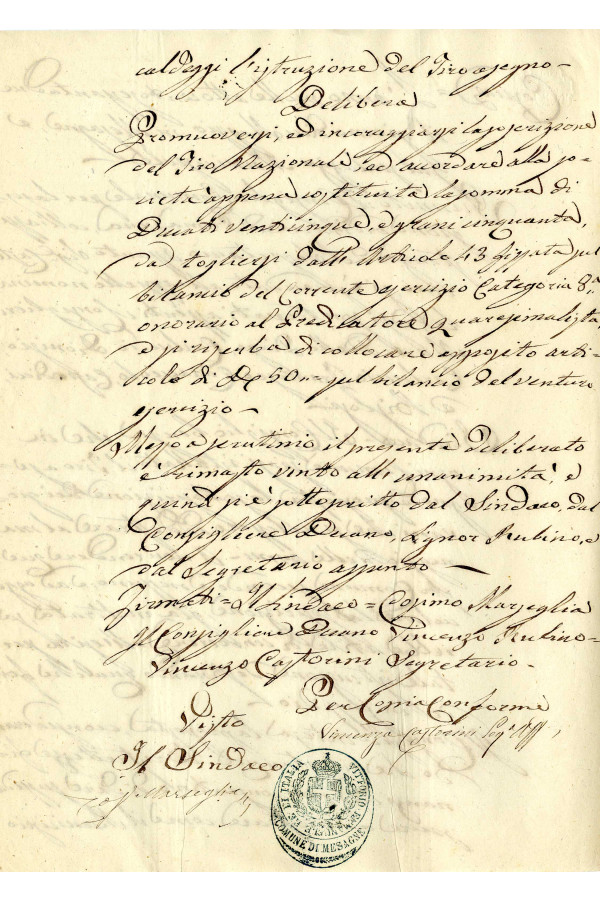 caldeggi l'istruzione del Tiro a segno-
Delibera
Promuoversi, ed incoraggiarsi la soscrizione
del Tiro Nazionale, ed accordare alla so-
cietà appena costituita la somma di
Ducati venticinque, e grani cinquanta,
da togliersi dall'Articolo 43 fissata sul
bilancio del Corrente esercizio Categoria 8.a
onorario al Predicatore quaresimalista,
e si riserba di collocare apposito arti-
colo di 50 sul bilancio del venturo
esercizio-
Messo a scrutinio il presente deliberato
è rimasto vinto all'unanimità, e
quindi si è sottoscritto dal Sindaco, dal
Consigliere Decano, Signor Rubino, e
dal Segretario assunto-
Firmati= Il Sindaco= Cosimo Marseglia
Il Consigliere Decano Vincenzo Rubino=
Vincenzo Castorini Segretario-
Per Copia Conforme
Vincenzo Castorini Seg.o
Visto
Il Sindaco
Marseglia
VITTORIO EM. RE DI ITALIA
COMUNE DI MESAGNE